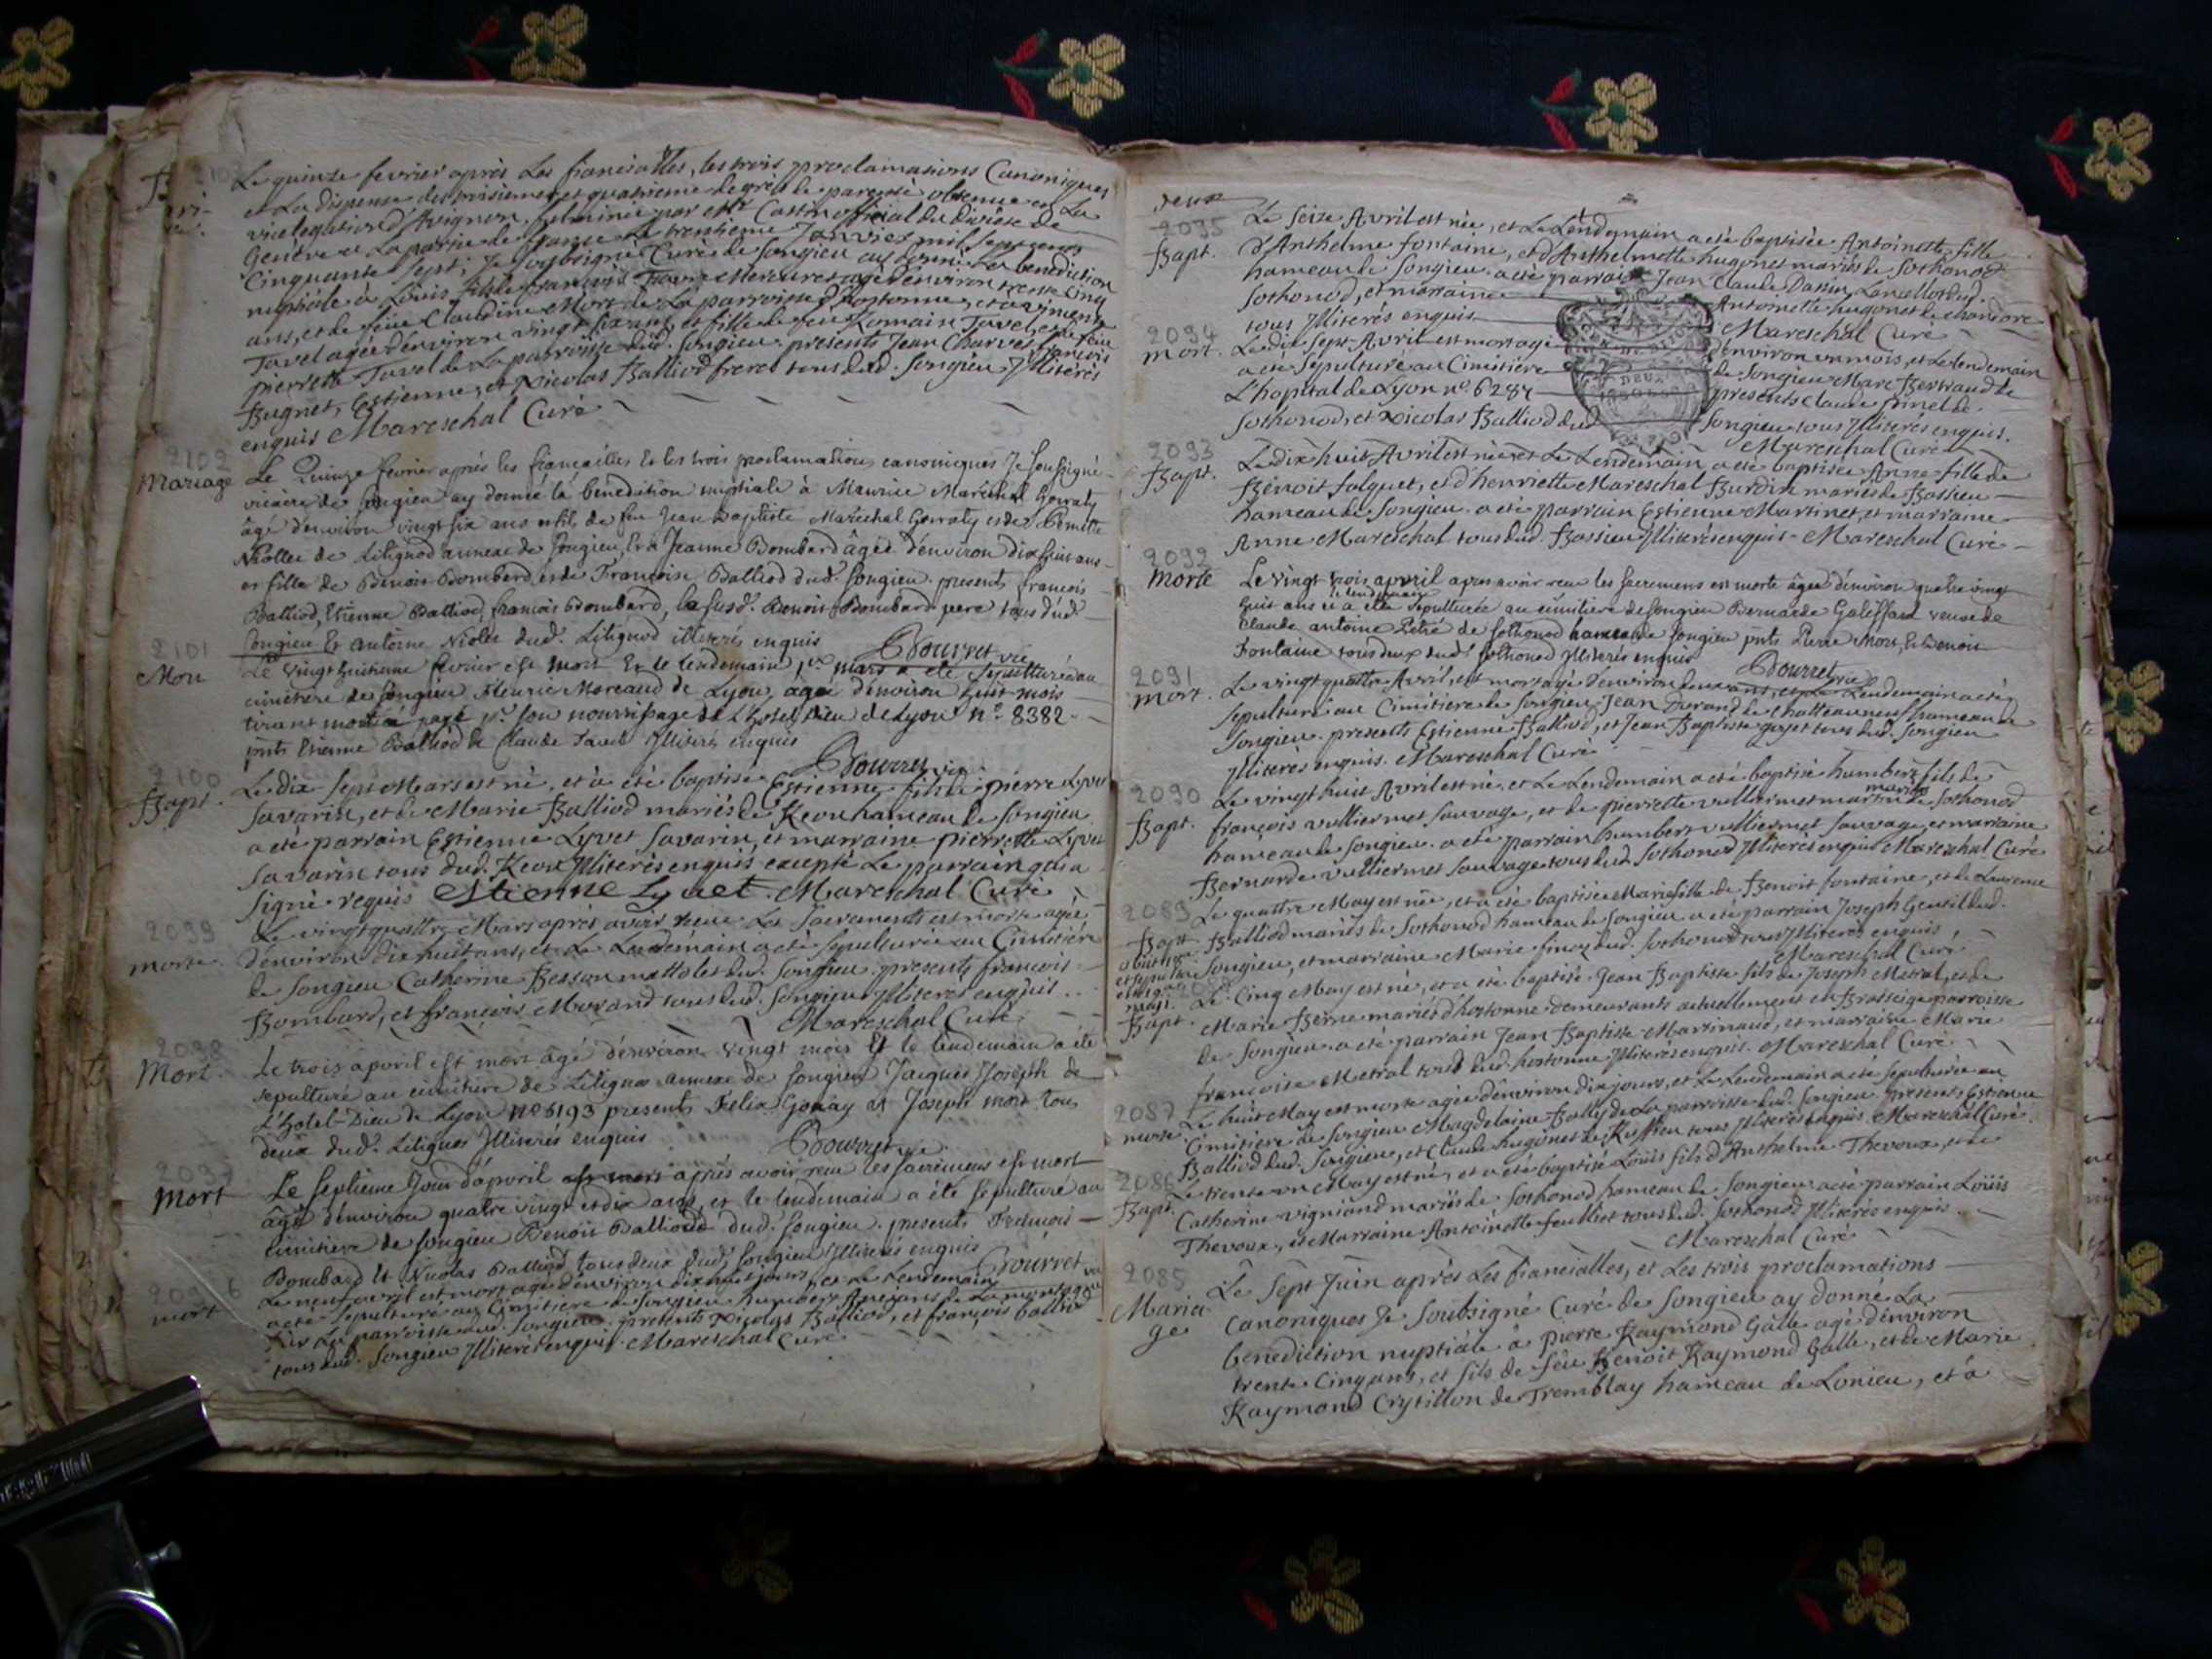 2103
Le quinze fevrier après Les fiancialles, les trois proclamations Canoniques
et La dispense du troisieme et quatrieme degrés de parenté obtenue en La
vicelegation d'Avignon, fulminée par Official du Diocèse de
Genève en La partie de france Le trentieme Janvier mil sept cents
Cinquante sept; Je soubsigné Curé de Songieu ay donné La benediction
nuptiale à Loüis fils de françois agé d'environ trente cinq
ans, et de feüe Claudine Mort de La parroisse d'hostonne, et à
Tavel agée d'environ vingt six ans, et fille de feu Romain Tavel, et de feüe
pierrette Tavel de La parroisse dud. Songieu. presents Jean Charvet, françois
Bugnet, Estienne, et Nicolas Balliod freres tous dud. Songieu Jlliterés
enquis Mareschal Curé
2102
Mariage
Le Quinze fevrier après les fiancailles Et les trois proclamations canoniques Je soussigné
vicaire de Songieu ay donné la benediction nuptiale à Maurice Maréchal
âgé d'environ vingt six ans et fils de feu Jean Baptiste Maréchal et de
Niollet de Lilignod annexe de Songieu, Et à Jeanne Bombard âgée d'environ dix huit ans
et fille de Benoit Bombard et de Françoise Balliod dud. Songieu. presents françois
Balliod, Etienne Balliod, francois Bombard, le susd. Benoit Bombard pere tous dud.
Songieu Et antoine Niolet dud. Lilignod illiterés enquis
Bourret vic.
2101
Mort
Le vingt huitieme fevrier est mort Et le lendemain 1er mars a été sepulturé au
cimetiere de Songieu Fleurie Moreaud de Lyon, agée d'environ huit mois
tirant moitié pagé pr. son nourrissage de L'hotel Dieu de Lyon n° 8382
pnts Etienne Balliod et Claude Tavel Jlliterés enquis
Bourret vic.
2100
Bapt.
Le dix sept Mars est né, et à été baptisé Estienne fils de pierre Lyvet
Savarin, et de Marie Balliod mariés de hameau de Songieu
a été parrain Estienne Lyvet Savarin, et marraine pierrette Lyvet
Savarin tous dud. Jlliterés enquis excepté Le parrain qui a
signé requis Estienne Lyuet. Mareschal Curé
2099
morte.
Le vingt quattre Mars après avoir reçue Les Sacrements est morte agée
d'environ dix huit ans, et Le Lendemain a été sepulturée au Cimitiére
de Songieu Catherine Besson mattolet dud. Songieu. presents francois
Bombard, et françois Morand tous dud. Songieu Jlliterés enquis
Mareschal Curé
2098
Mort.
Le trois apvril est mort âgé d'environ vingt mois Et le lendemain a été
sepulturé au cimitiere de Lilignod annexe de Songieu Jacques Joseph de
L'hotel-Dieu de Lyon n° 6193 presents Felix Gonay et Joseph mort tous
deux dud. Lilignod Jlliterés enquis
Bourret vic
2097
Mort
Le septieme Jour d'apvril est mort après avoir reçu les sacremens est mort
âgé d'environ quatre vingt et dix ans, et le lendemain a été sepulturé au
cimitiere de Songieu Benoit Balliod dud. Songieu. presents francois
Bombard Et Nicolas Balliod tous deux dud. Songieu Jlliterés enquis
Bourret vic
2096
mort
Le neuf avril est mort agé d'environ dix huit jours, et Le Lendemain
a été sepulturé au Cimitiere de Songieu humbert de La montagne
sur La parroisse dud. Songieu. presents Nicolas Balliod, et françois Balliod
tous dud. Songieu Jlliterés enquis. Mareschal Curé
deux
2095
Bapt.
Le seize Avril est née, et Le Lendemain a été baptisée Antoinette fille
d'Anthelme fontaine, et d'Anthelmette hugonet mariés de Sothonod
hameau de Songieu. a été parrain Jean Claude Lancellot dud.
Sothonod, et marraine Antoinette hugonet de chandore
tous Jlliterés enquis Mareschal Curé
2094
mort.
Le dix Sept Avril est mort agé d'environ un mois, et Le lendemain
a été sepulturé au Cimitiere de Songieu Marc Bertrand de
L'hopital de Lyon n° 6287 presents Claude pinel de
Sothonod, et Nicolas Balliod dud. Songieu tous Jlliterés enquis.
Mareschal Curé
2093
Bapt.
Le dix huit Avril est née et Le Lendemain a été baptisée Anne fille de
Benoit folquet, et d'henriette Mareschal Burdin mariés de Bassieu
hameau de Songieu. a été parrain Estienne Martinet, et marraine
Anne Mareschal tous dud. Bassieu Jlliterés enquis Mareschal Curé
2092
Morte
Le vingt trois apvril apres avoir reçu les sacremens est morte âgée d'environ quatre vingt
huit ans et le lendemain a été sepulturée au cimitiere de Songieu Bernarde Galiffard veuve de
Claude antoine de Sothonod hameau de Songieu pnts Pierre Mort, Et Benoit
Fontaine tous deux dud. Sothonod Jlliterés enquis
Bourret vic
2091
mort.
Le vingt quattre Avril, est mort agé d'environ deux ans, et Le Lendemain a été
sepulturé au Cimitiére de Songieu Jean Durand de Chatteauneuf hameau de
Songieu. presents Estienne Balliod, et Jean Baptiste guyet tous dud. Songieu
Jlliterés enquis. Mareschal Curé
2090
Bapt.
Le vingt huit Avril est né, et Le Lendemain a été baptisé humbert fils de
françois vulliermet Sauvage, et de pierrette vulliermet mariés de Sothonod
hameau de Songieu. a été parrain humbert vulliermet Sauvage, et marraine
Bernarde vulliermet Sauvage tous dud. Sothonod Jlliterés enquis Mareschal Curé
2089
Bapt.
Le quattre May est née, et a été baptisée Marie fille de Benoit fontaine, et de Laurence
Balliod mariés de Sothonod hameau de Songieu a été parrain Joseph Gentil dud.
Songieu, et marraine Marie dud. Sothonod tous Jlliterés enquis
Mareschal Curé
2088
Bapt.
Le Cinq May est né, et a été baptisé Jean Baptiste fils de Joseph Metral, et de
Marie Berne mariés d'hostonne demeurants actuellement en parroisse
de Songieu. a été parrain Jean Baptiste Martinaud, et marraine Marie
francoise Metral tous dud. hostonne Jlliterés enquis. Mareschal Curé
2087
morte
Le huit May est morte agée d'environ dix jours, et Le Lendemain a été sepulturée au
Cimitiére de Songieu Magdelaine Bolly de La parroisse dud. Songieu. presents Estienne
Balliod dud. Songieu, et Claude hugonet de Ruffieu tous Jlliterés enquis Mareschal Curé.
2086
Bapt.
Le trente un May est né, et a été baptisé Loüis fils d'Anthelme Thevoux, et de
Catherine vigniand mariés de Sothonod hameau de Songieu a été parrain Loüis
Thevoux, et Marraine Antoinette feulliet tous dud. Sothonod Jlliterés enquis
Mareschal Curé
2085
Maria
ge
Le Sept Juin après Les fiancialles, et Les trois proclamations
Canoniques Je Soubsigné Curé de Songieu ay donné La
benediction nuptiale à Pierre Raymond Galle agé d'environ
trente Cinq ans, et fils de feu Benoit Raymond Galle, et de Marie
Raymond Crytillon de Tremblay hameau de Lonieu, et à